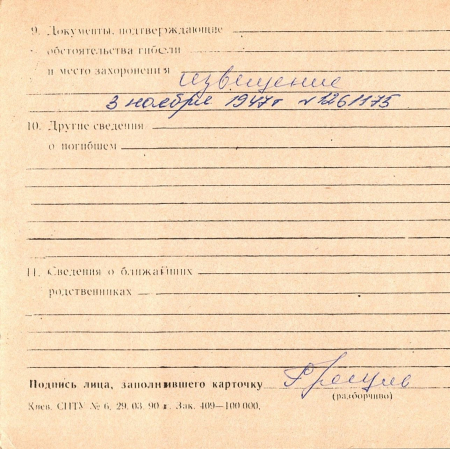 9. Документы, подтверждающие
обстоятельства гибели
и место захоронения извещение
3 ноября 1947г №1261175
10. Другие сведения
о погибшем
11. Сведения о ближайших
родственниках
Подпись лица, заполнившего карточку
(разборчиво)
Киев. СПТУ № 6. 29. 03. 90 г. Зак. 409—100 000.